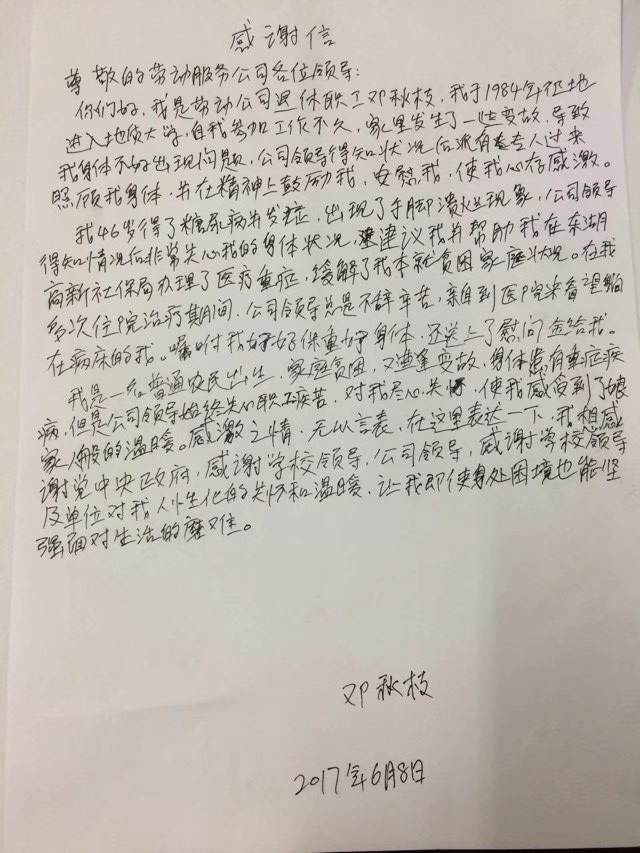 感谢信
尊敬的劳动服务公司各位领导:
你们好,我是劳动公司退休职工邓秋枝,我于1984年征地
进入地质大学,自我参加工作不久,家里发生了一些变故,导致
我身体不好出现问题,公司领导得知状况后派有专人过来
照顾我身体,并在精神上鼓励我,安慰我,使我心存感激。
我46岁得了糖尿病并发症,出现了手脚溃烂现象,公司领导
得知情况后非常关心我的身体状况,建议我并帮助我在东湖
高新社保局办理了医疗重症,缓解了我本就贫困家庭状况。在我
多次住院治疗期间,公司领导总是不辞辛苦,亲自到医院来看望躺
在病床的我。嘱咐我好好保重好身体,还送上了慰问金给我。
我是一名普通农民出生,家庭贫困,又遭望变故,身体患有重症疾
病,但是公司领导始终关心职工疾苦,对我尽心关怀,使我感受到了娘
家人般的温暖。感激之情,无以言表,在这里表达一下,我想感
谢党中央政府,感谢学校领导,公司领导,感谢学校领导
及单位对我人性化的关怀和温暖,让我即使身处困境也能坚
强面对生活的磨难。
邓秋枝
2017年6月8日